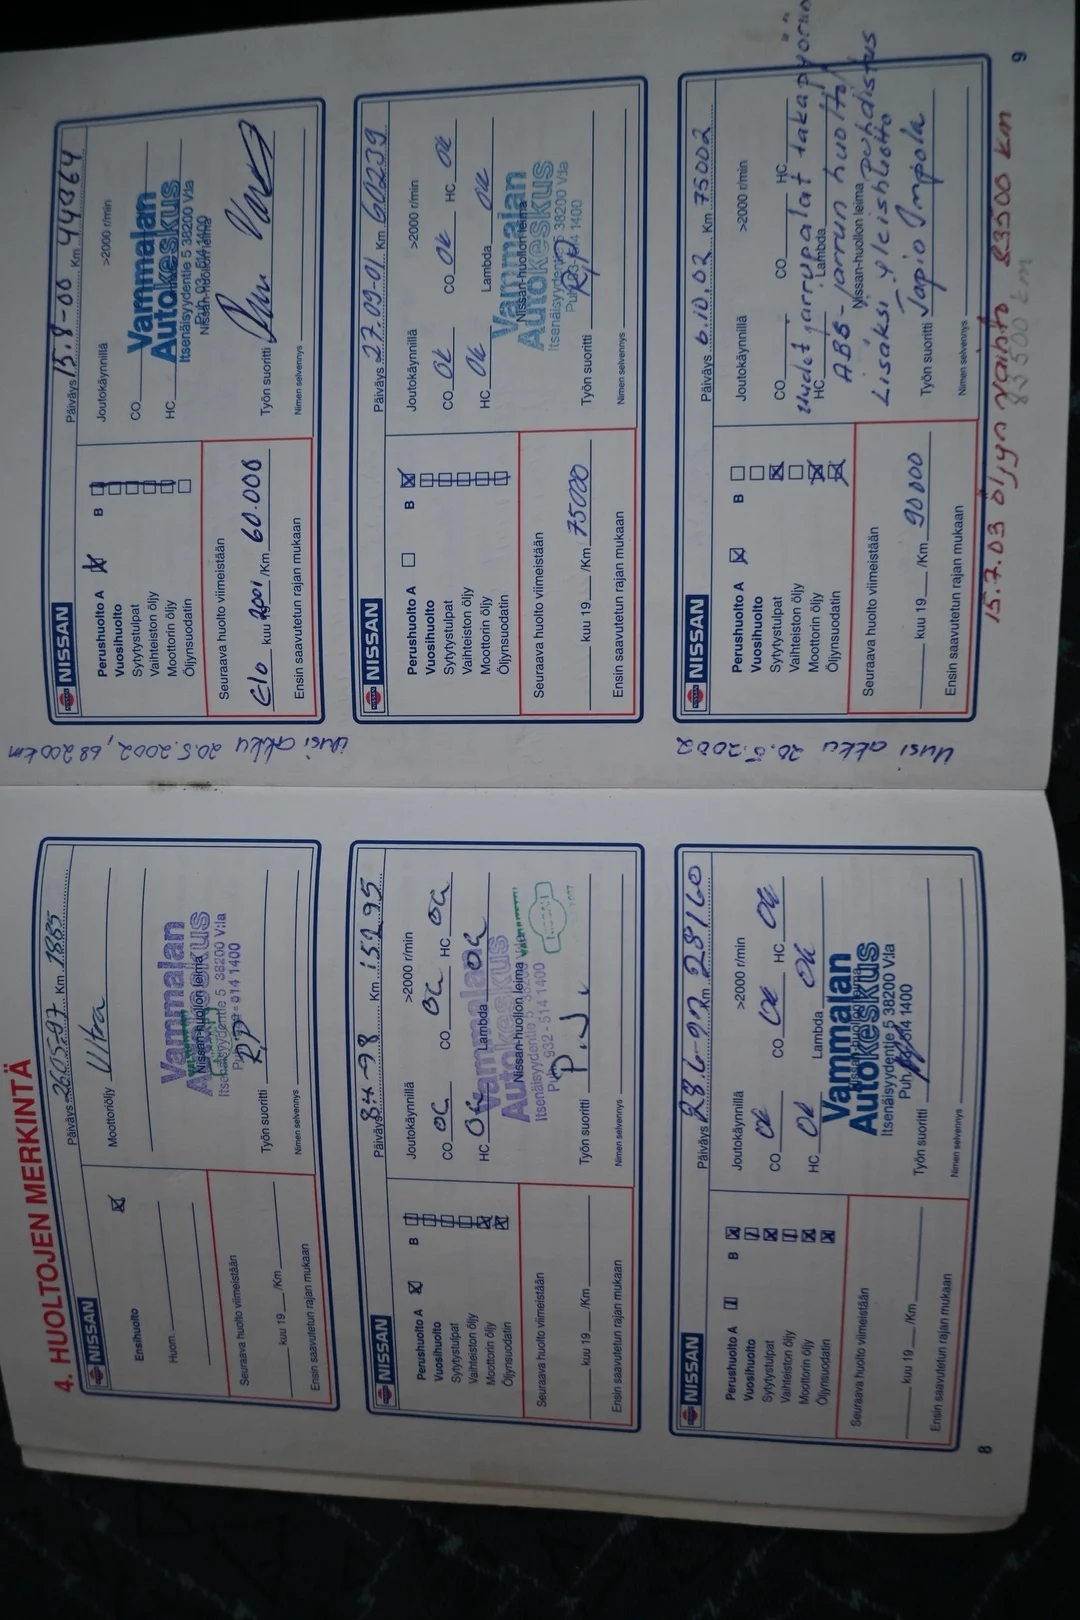 4. HUOLTOJEN MERKINTÄ
NISSAN
Päiväys 26.05-97 Km 1885
Ensihuolto
Moottoriöljy Ultra
Huom.
Vammalan
Autokeskus
Nissan-huollon leima
Itsenäisyydentie 5 38200 V:la
Seuraava huolto viimeistään
kuu 19 /Km
Ensin saavutetun rajan mukaan
Työn suoritti RP
Nimen selvennys
NISSAN
Päiväys 8-4-98 Km 15295
Perushuolto A B
Vuosihuolto
Sytytystulpat
Vaihteiston öljy
Moottorin öljy
Öljynsuodatin
Joutokäynnillä >2000 r/min
CO OK CO OK HC OK
HC OK Lambda OK
Vammalan
Autokeskus
Nissan-huollon leima
Itsenäisyydentie 5 38200
Puh. 932-514 1400
Seuraava huolto viimeistään
kuu 19 /Km
Ensin saavutetun rajan mukaan
Työn suoritti P.J
Nimen selvennys
NISSAN
Päiväys 28.6-99 Km 28160
Perushuolto A B
Vuosihuolto
Sytytystulpat
Vaihteiston öljy
Moottorin öljy
Öljynsuodatin
Joutokäynnillä >2000 r/min
CO OK CO OK HC OK
HC OK Lambda OK
Vammalan
Autokeskus
Itsenäisyydentie 5 38200 V:la
Puh. 514 1400
Seuraava huolto viimeistään
kuu 19 /Km
Ensin saavutetun rajan mukaan
Työn suoritti
Nimen selvennys
8
NISSAN
Päiväys 15.8-00 Km 44364
Perushuolto A B
Vuosihuolto
Sytytystulpat
Vaihteiston öljy
Moottorin öljy
Öljynsuodatin
Joutokäynnillä >2000 r/min
CO
HC
Vammalan
Autokeskus
Itsenäisyydentie 5 38200 V:la
Puh. 03-514 1400
Nissan-huollon leima
Seuraava huolto viimeistään
elo kuu 2001 /Km 60.000
Ensin saavutetun rajan mukaan
Työn suoritti
Nimen selvennys
Uusi akku 20.5.2002, 68200 km
NISSAN
Päiväys 27.09-01 Km 60239
Perushuolto A B
Vuosihuolto
Sytytystulpat
Vaihteiston öljy
Moottorin öljy
Öljynsuodatin
Joutokäynnillä >2000 r/min
CO OK CO OK HC OK
HC OK Lambda OK
Vammalan
Autokeskus
Nissan-huollon leima
Itsenäisyydentie 5 38200 V:la
Puh. 03-514 1400
Seuraava huolto viimeistään
kuu 19 /Km 75000
Ensin saavutetun rajan mukaan
Työn suoritti RP
Nimen selvennys
Uusi akku 20.5.2002
NISSAN
Päiväys 6.10.02 Km 75002
Perushuolto A B
Vuosihuolto
Sytytystulpat
Vaihteiston öljy
Moottorin öljy
Öljynsuodatin
Joutokäynnillä >2000 r/min
CO CO HC
Uudet jarrupalat takapyöriin
HC Lambda
ABB-jarrun huolto/
Nissan-huollon leima puhdistus
Lisäksi yleishuolto
Seuraava huolto viimeistään
kuu 19 /Km 90000
Ensin saavutetun rajan mukaan
Työn suoritti Tapio Impola
Nimen selvennys
15.7.03 öljyn vaihto 83500 km
83500 km
9